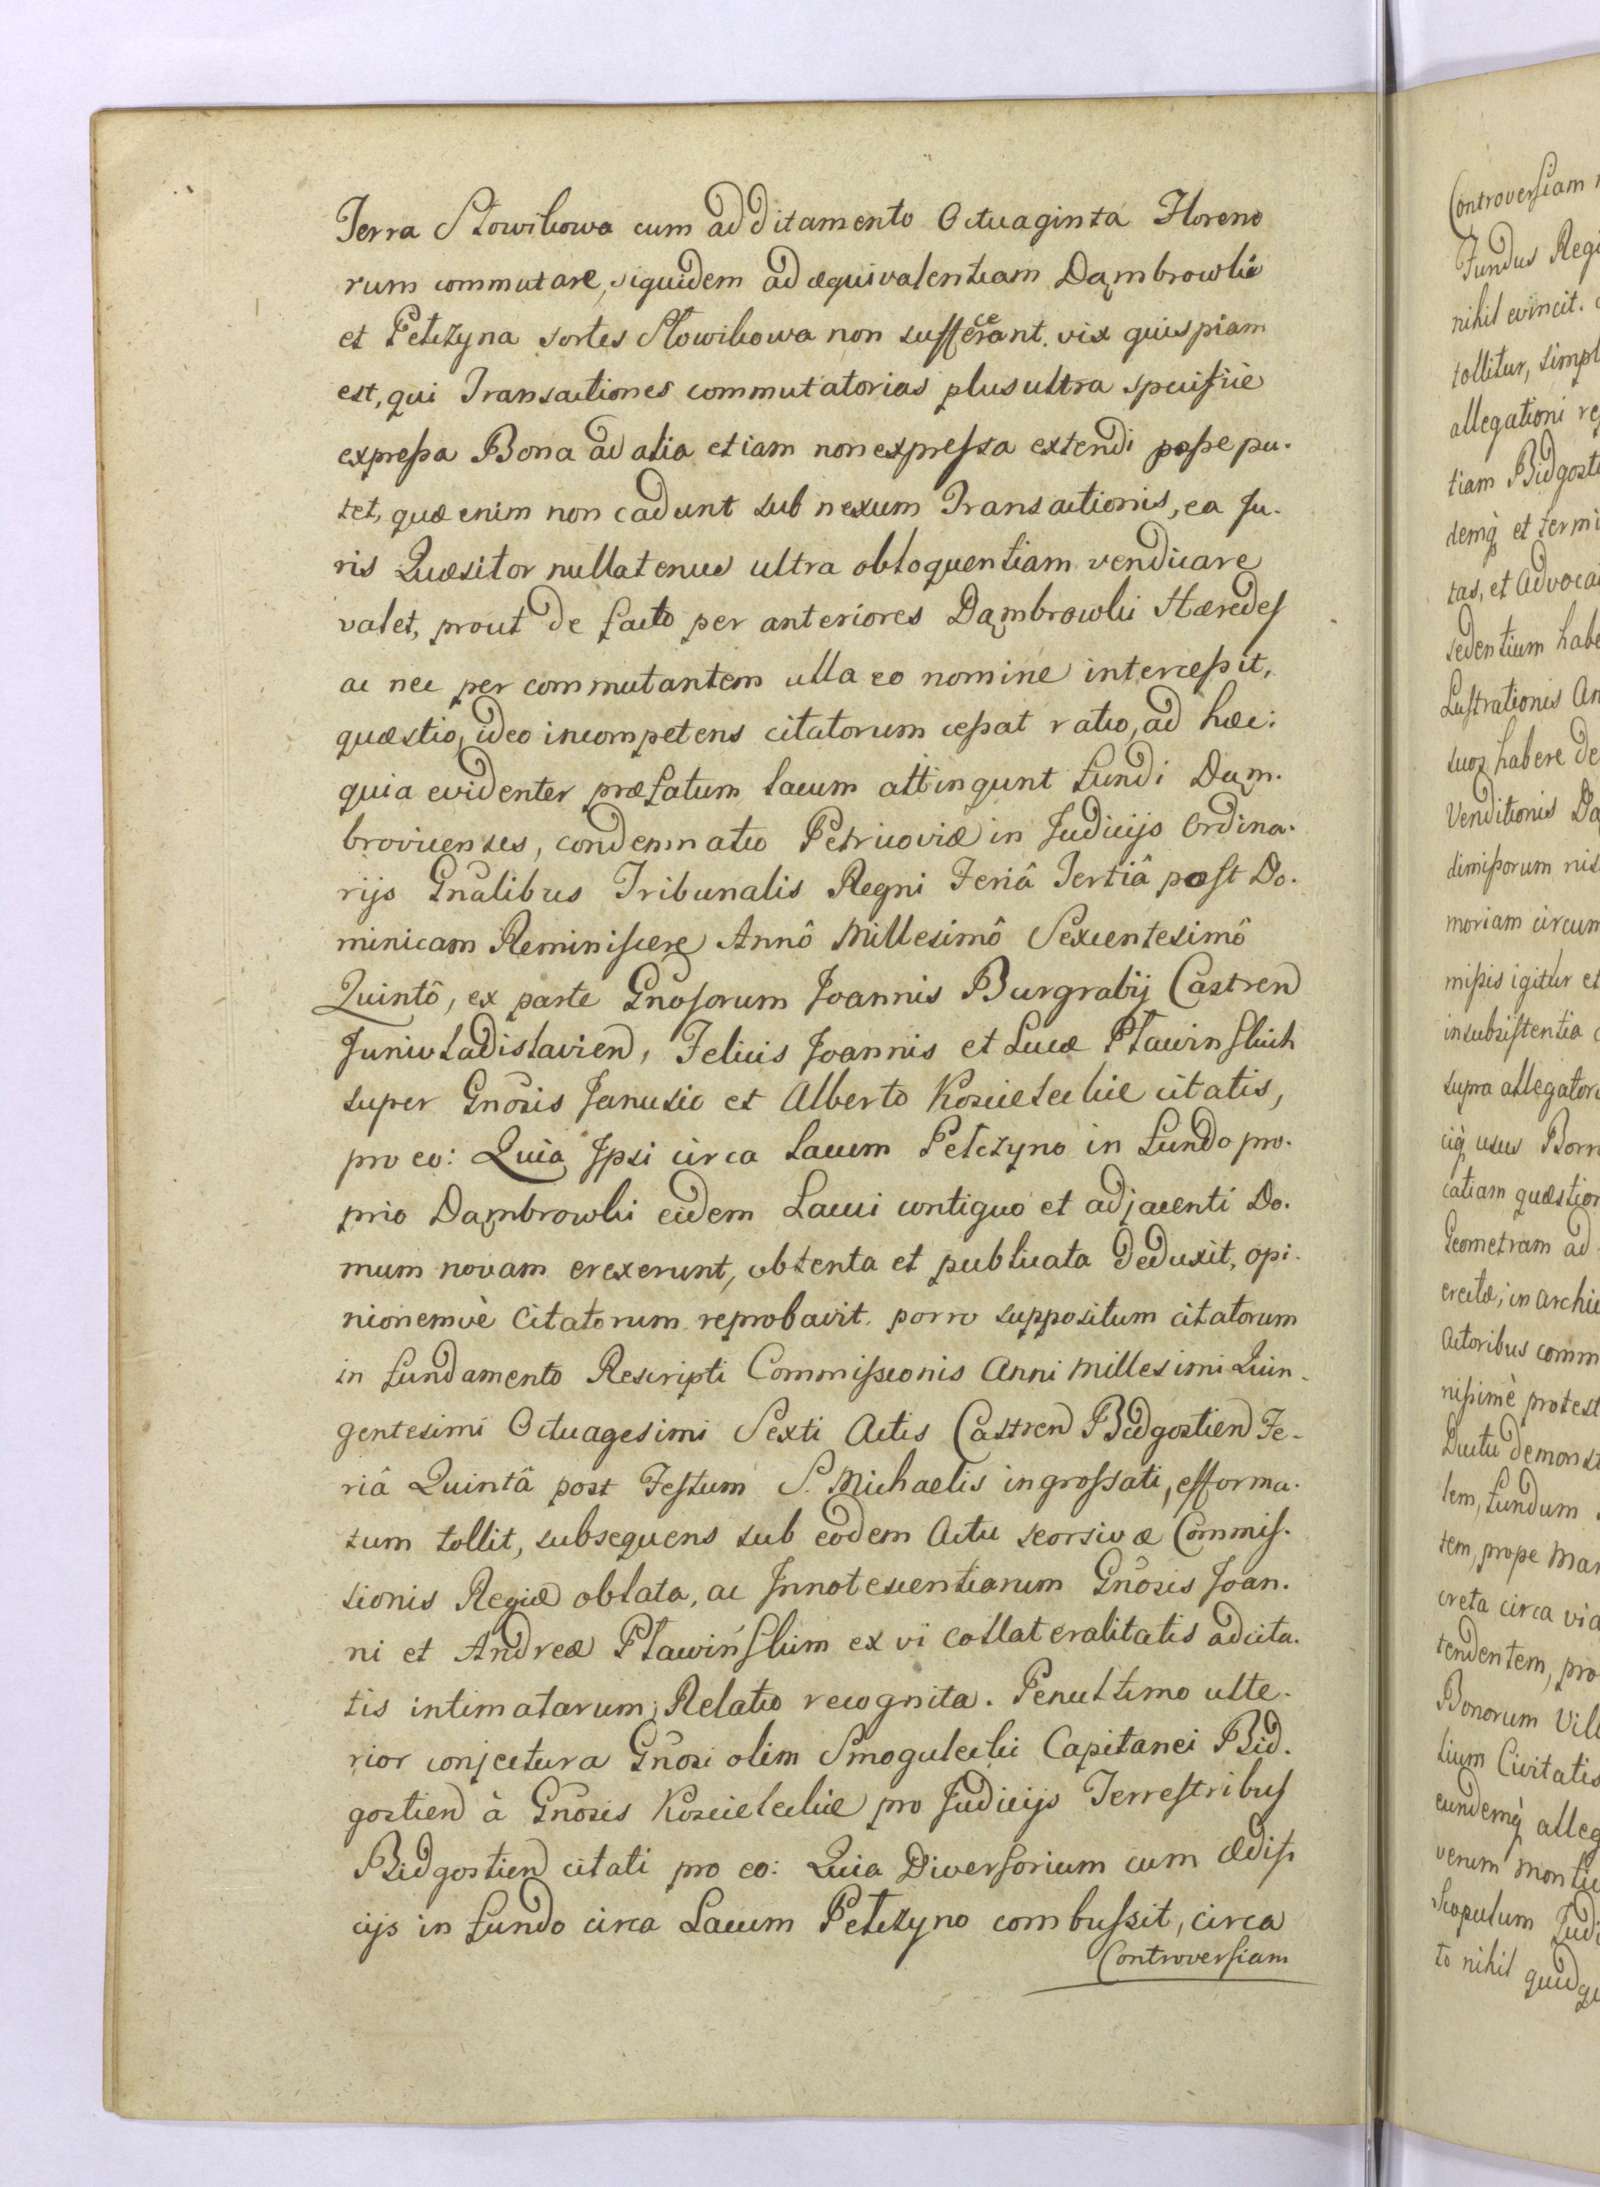 Terra Słowikowa cum additamento Octuaginta Floreno
rum commutare, siquidem ad æquivalentiam Dąmbrowki
et Petczyna sortes Słowikowa non sufficerant. vix quispiam
est, qui Transactiones commutatorias plus ultra specificè
expressa Bona ad alia etiam non expressa extendi posse pu-
tet, quæ enim non cadunt sub nexum Transactionis, ea Ju-
ris Quæsitor nullatenus ultra obloquentiam vendicare
valet, prout de facto per anteriores Dąmbrowki Hæredes
ac nec per commutantem ulla eo nomine intercessit,
quæstio, ideo incompetens citatorum cessat ratio, ad hæc:
quia evidenter præfatum lacum attingunt fundi Dąm-
brovicenses, condemnatio Petricoviæ in Judicijs Ordina-
rijs Gnâlibus Tribunalis Regni Feriâ Tertiâ post Do-
minicam Reminiscere Annô Millesimô Sexcentesimô
Quintô, ex parte Gnosorum Joannis Burgrabij Castren
Juniwladislavien, Felicis Joannis et Lucæ Pławinskich
super Gnosis Janusio et Alberto Koscieleckie citatis,
pro eo: Quia Ipsi circa Lacum Petczyno in fundo pro-
prio Dąmbrowki eidem Lacui contiguo et adjacenti Do-
mum novam erexerunt, obtenta et publicata deduxit, opi-
nionemvè Citatorum reprobavit. porro suppositum citatorum
in fundamento Rescripti Commissionis Anni Millesimi Quin-
gentesimi Octuagesimi Sexti Actis Castren Bidgostien Fe-
riâ Quintâ post Festum S. Michaelis ingrossati, efforma-
tum tollit, subsequens sub eodem Actu seorsivæ Commis-
sionis Regiæ oblata, ac Innotescentiarum Gnosis Joan-
ni et Andreæ Pławińskim ex vi collateralitatis adcita-
tis intimatarum, Relatio recognita. Penultimo ulte-
rior conjectura Gnosi olim Smogulecki Capitanei Bid-
gostien à Gnosis Koscieleckie pro Judicijs Terrestribus
Bidgostien citati pro eo: Quia Diversorium cum ædifi
cijs in fundo circa Lacum Petczyno combussit, circa
Controversiam
Controversiam
Fundus Regi
nihil evincit.
tollitur, simpl
allegationi re
tiam Bidgosti
demq̀ et termi
tas, et Advoca
sedentium habe
Lustrationis An
suos habere de
Venditionis Dą
dimissorum nis
moriam circum
missis igitur et
insubsistentia
supra allegator
ciq̀ usus Born
catiam quæstion
Geometram ad
erectæ, in Archi
Actoribus comm
nissimè protest
Ductu demonst
lem, fundum
tem, prope Mar
creta circa via
tendentem, pro
Bonorum Vill
lium Civitatis
eundemq̀ alleg
verum monti
Scopulum Judi
to nihil quidqu